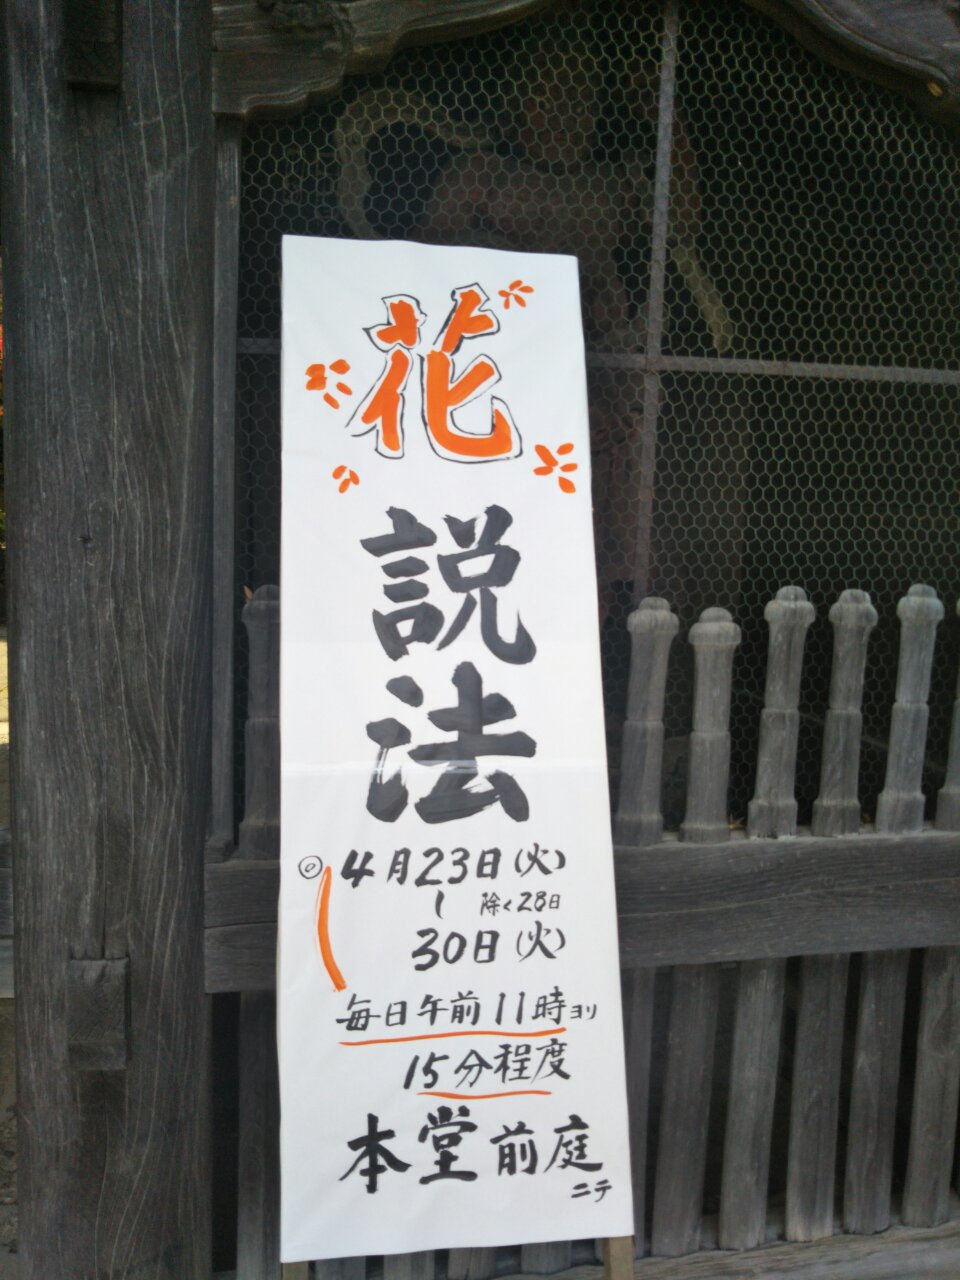 花
説
法
◎4月23日(火)
〜 除く28日
30日(火)
毎日午前11時ヨリ
15分程度
本堂前庭
ニテ